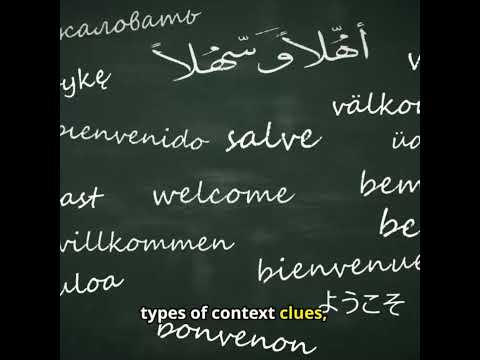 жаловать
أهْلاً وَ سَهْلاً
ykę
välko
bienvenido
salve
ast
welcome
bem
be
villkommen
bienvenue
uloa
ようこそ
types of context clues,
bonvenon